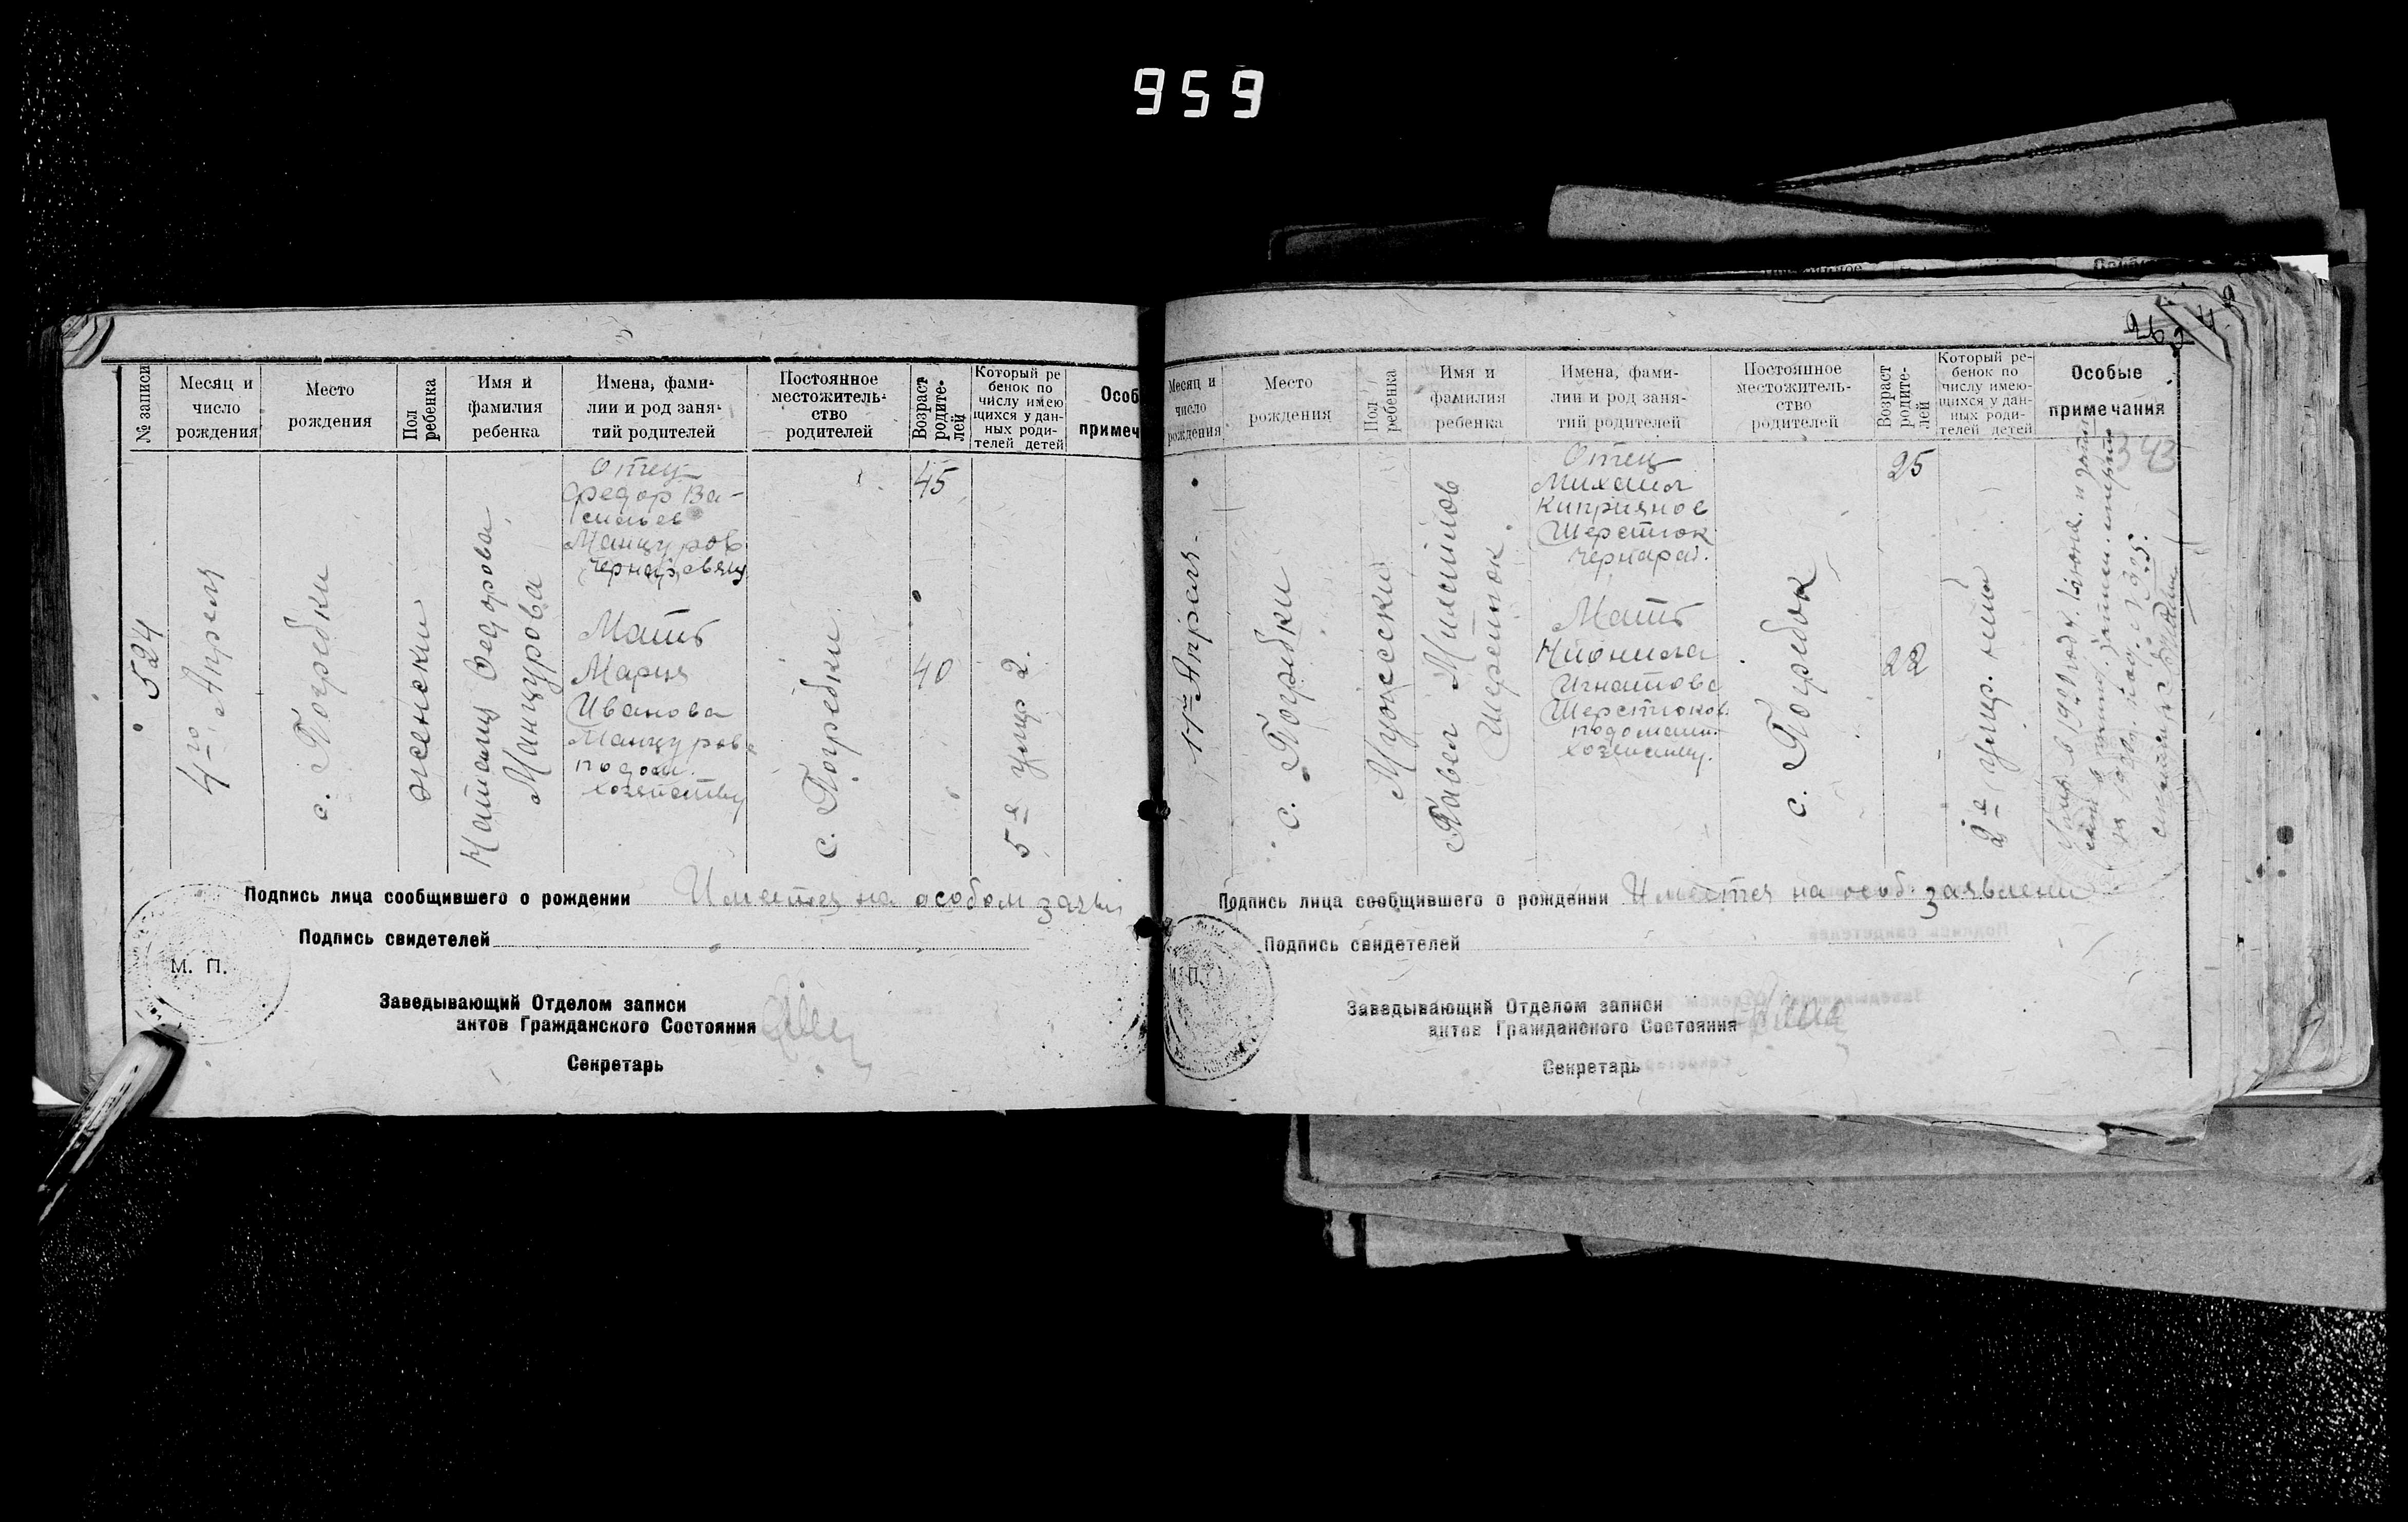 959
№ записи
Месяц и
число
рождения
Место
рождения
Пол
ребенка
Имя и
фамилия
ребенка
Имена, фами-
лии и род заня-
тий родителей
Постоянное
местожитель-
ство
родителей
Возраст
родите-
лей
Который ре
бенок по
числу имею
щихся у дан-
ных роди-
телей детей
Особ
примеч
524
4го Апреля
с. Погребки
женски
Наталия Федорова
Манцурова
Отец
Федор Ва-
сильев
Манцуров
Мать
Мария
Иванова
Манцуров
по дом.
хозяйству
с. Погребки
45
40
5й умер 2.
Подпись лица сообщившего о рождении Имеется на особом заяв
Подпись свидетелей
М. П.
Заведывающий Отделом записи
актов Гражданского Состояния
Секретарь
Месяц и
число
рождения
Место
рождения
Пол
ребенка
Имя и
фамилия
ребенка
Имена, фами-
лии и род заня-
тий родителей
Постоянное
местожитель-
ство
родителей
Возраст
родите-
лей
Который ре-
бенок по
числу имею-
щихся у дан-
ных роди-
телей детей
Особые
примечания
343
Апреля
с. Погребки
Мужески
Павел Михаилов
Шерстюк
Отец
Михаил
Киприянов
Шерстюк
Мать
Игнатова
Шерстюков
по домаш.
хозяйству.
с. Погребок
25
22
2й умер.
Подпись лица сообщившего о рождении Имеется на особ. заявлени
Подпись свидетелей
М. П.
Заведывающий Отделом записи
актов Гражданского Состояния
Секретарь